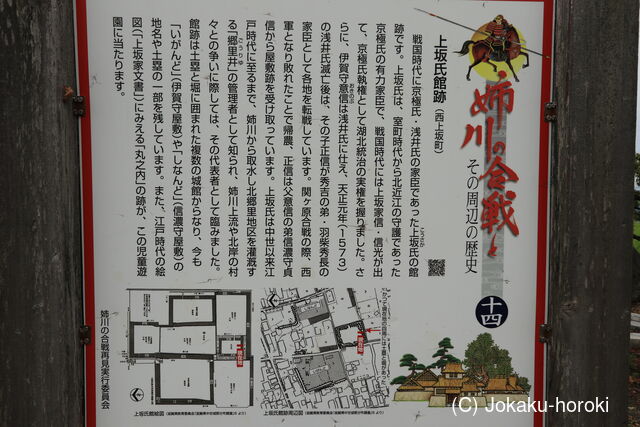 姉川の合戦と
その周辺の歴史
十四
上坂氏館跡（西上坂町）
戦国時代に京極氏・浅井氏の家臣であった上坂氏の館
こうざか
跡です。上坂氏は、室町時代から北近江の守護であった
京極氏の有力家臣で、戦国時代には上坂家信・信光が出
て、京極氏執権として湖北統治の実権を握りました。さ
らに、伊賀守意信は浅井氏に仕え、天正元年（1573）
の浅井氏滅亡後は、その子正信が秀吉の弟・羽柴秀長の
家臣として各地を転戦しています。関ヶ原合戦の際、西
軍となり敗れたことで帰農、正信は父意信の弟信濃守貞
信から屋敷跡を受け取っています。上坂氏は中世以来江
戸時代に至るまで、姉川から取水し北郷里地区を灌漑す
る「郷里井」の管理者として知られ、姉川上流や北岸の村
ごうりゆ
々との争いに際しては、その代表者として臨みました。
館跡は土塁と堀に囲まれた複数の城館からなり、今も
「いがんど」（伊賀守屋敷）や「しなんど」（信濃守屋敷）の
地名や土塁の一部を残しています。また、江戸時代の絵
図（「上坂家文書」）にみえる「丸之内」の跡が、この児童遊
園に当たります。
上坂氏館絵図
上坂氏館周辺図
姉川の合戦再見実行委員会
(C) Jokaku-horoki